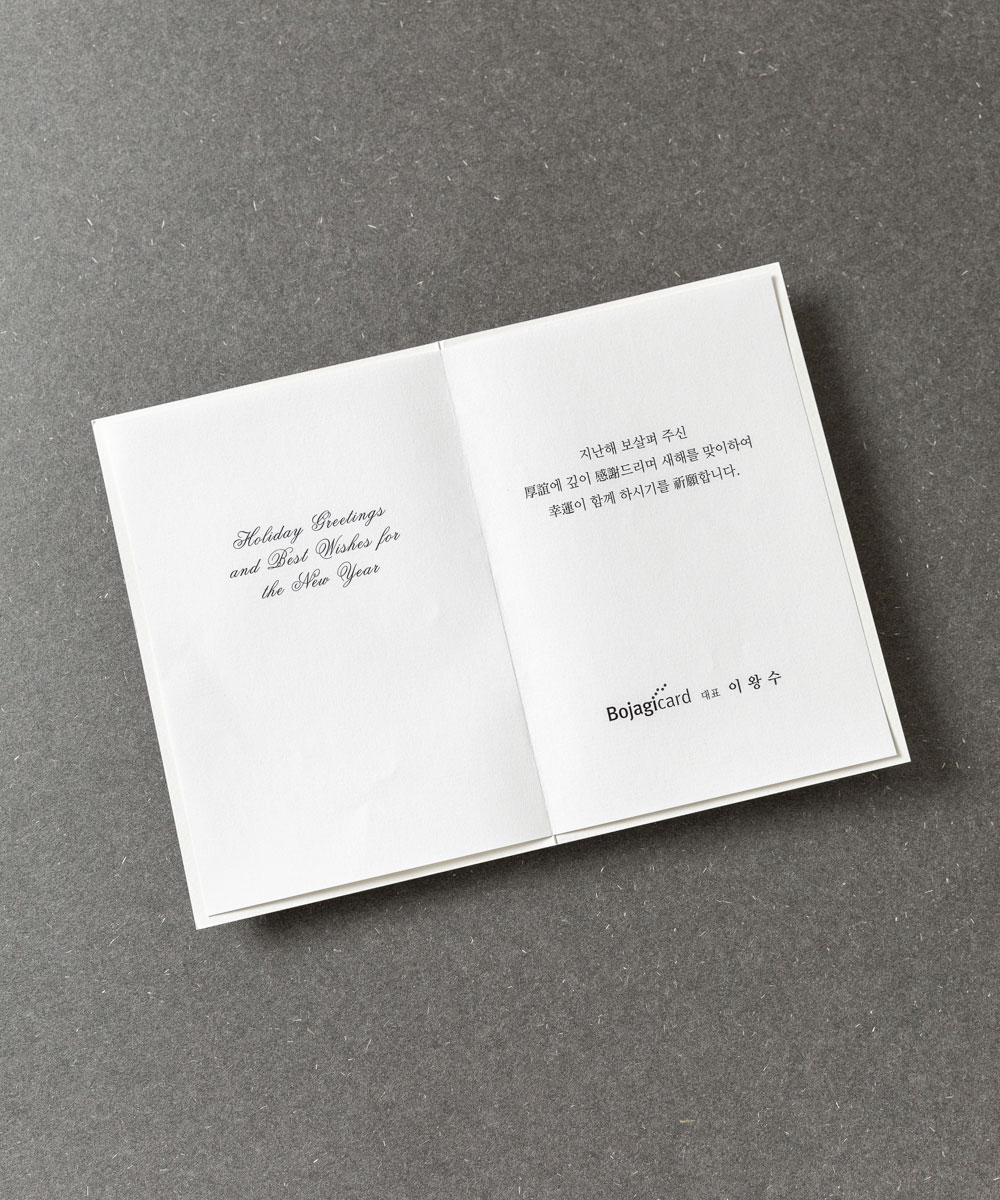 Holiday Greetings
and Best Wishes for
the New Year
지난해 보살펴 주신
厚誼에 깊이 感謝드리며 새해를 맞이하여
幸運이 함께 하시기를 祈願합니다.
Bojagicard 대표 이 왕 수